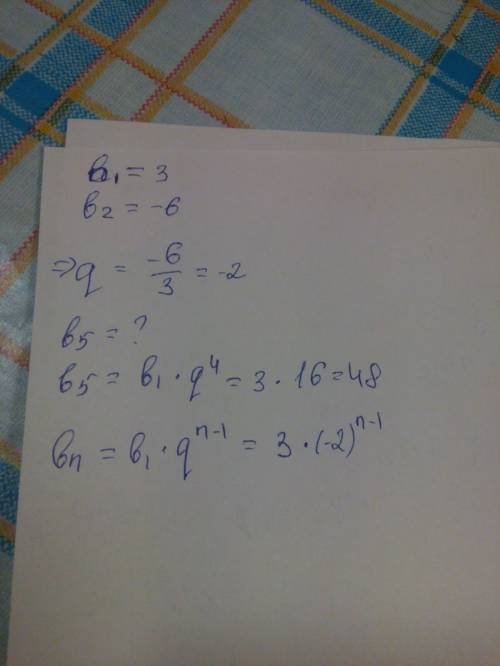 b₁ = 3
b₂ = -6
⇒ q = -6/3 = -2
b₅ = ?
b₅ = b₁ · q⁴ = 3 · 16 = 48
bₙ = b₁ · qⁿ⁻¹ = 3 · (-2)ⁿ⁻¹